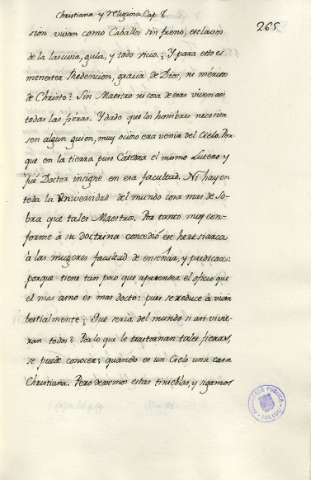 Christiana y Maquina Cap. 8
265
sion vivan como Caballos sin freno, esclavos
de la lascivia, gula, y todo vicio? Y para esto es
menester Redencion, gracia de Dios, ni meritos
de Christo? Sin Maestro ni cosa de estas viven en
todas las fieras. Y dado que los hombres necesite
sen algun guion, muy ocioso era venir del Cielo. Por
que en la tierra puso Catedra el mismo Lutero, y
fue Doctor insigne en esa facultad. Ni hay en
toda la Universidad del mundo cosa mas de so-
bra que tales Maestros. Por tanto muy con-
forme à su doctrina concedió este heresiarca
à las mugeres facultad de enseñar, y predicar
porque tiene tan poco que aprender el oficio que
el mas asno es mas docto: pues se reduce à vivir
bestialmente; Que seria del mundo si asi vivie-
ran todos? Por lo que le trastornan tales fieras,
se puede conocer, quando es un Cielo una casa
Christiana. Pero dexemos estas tinieblas, y sigamos